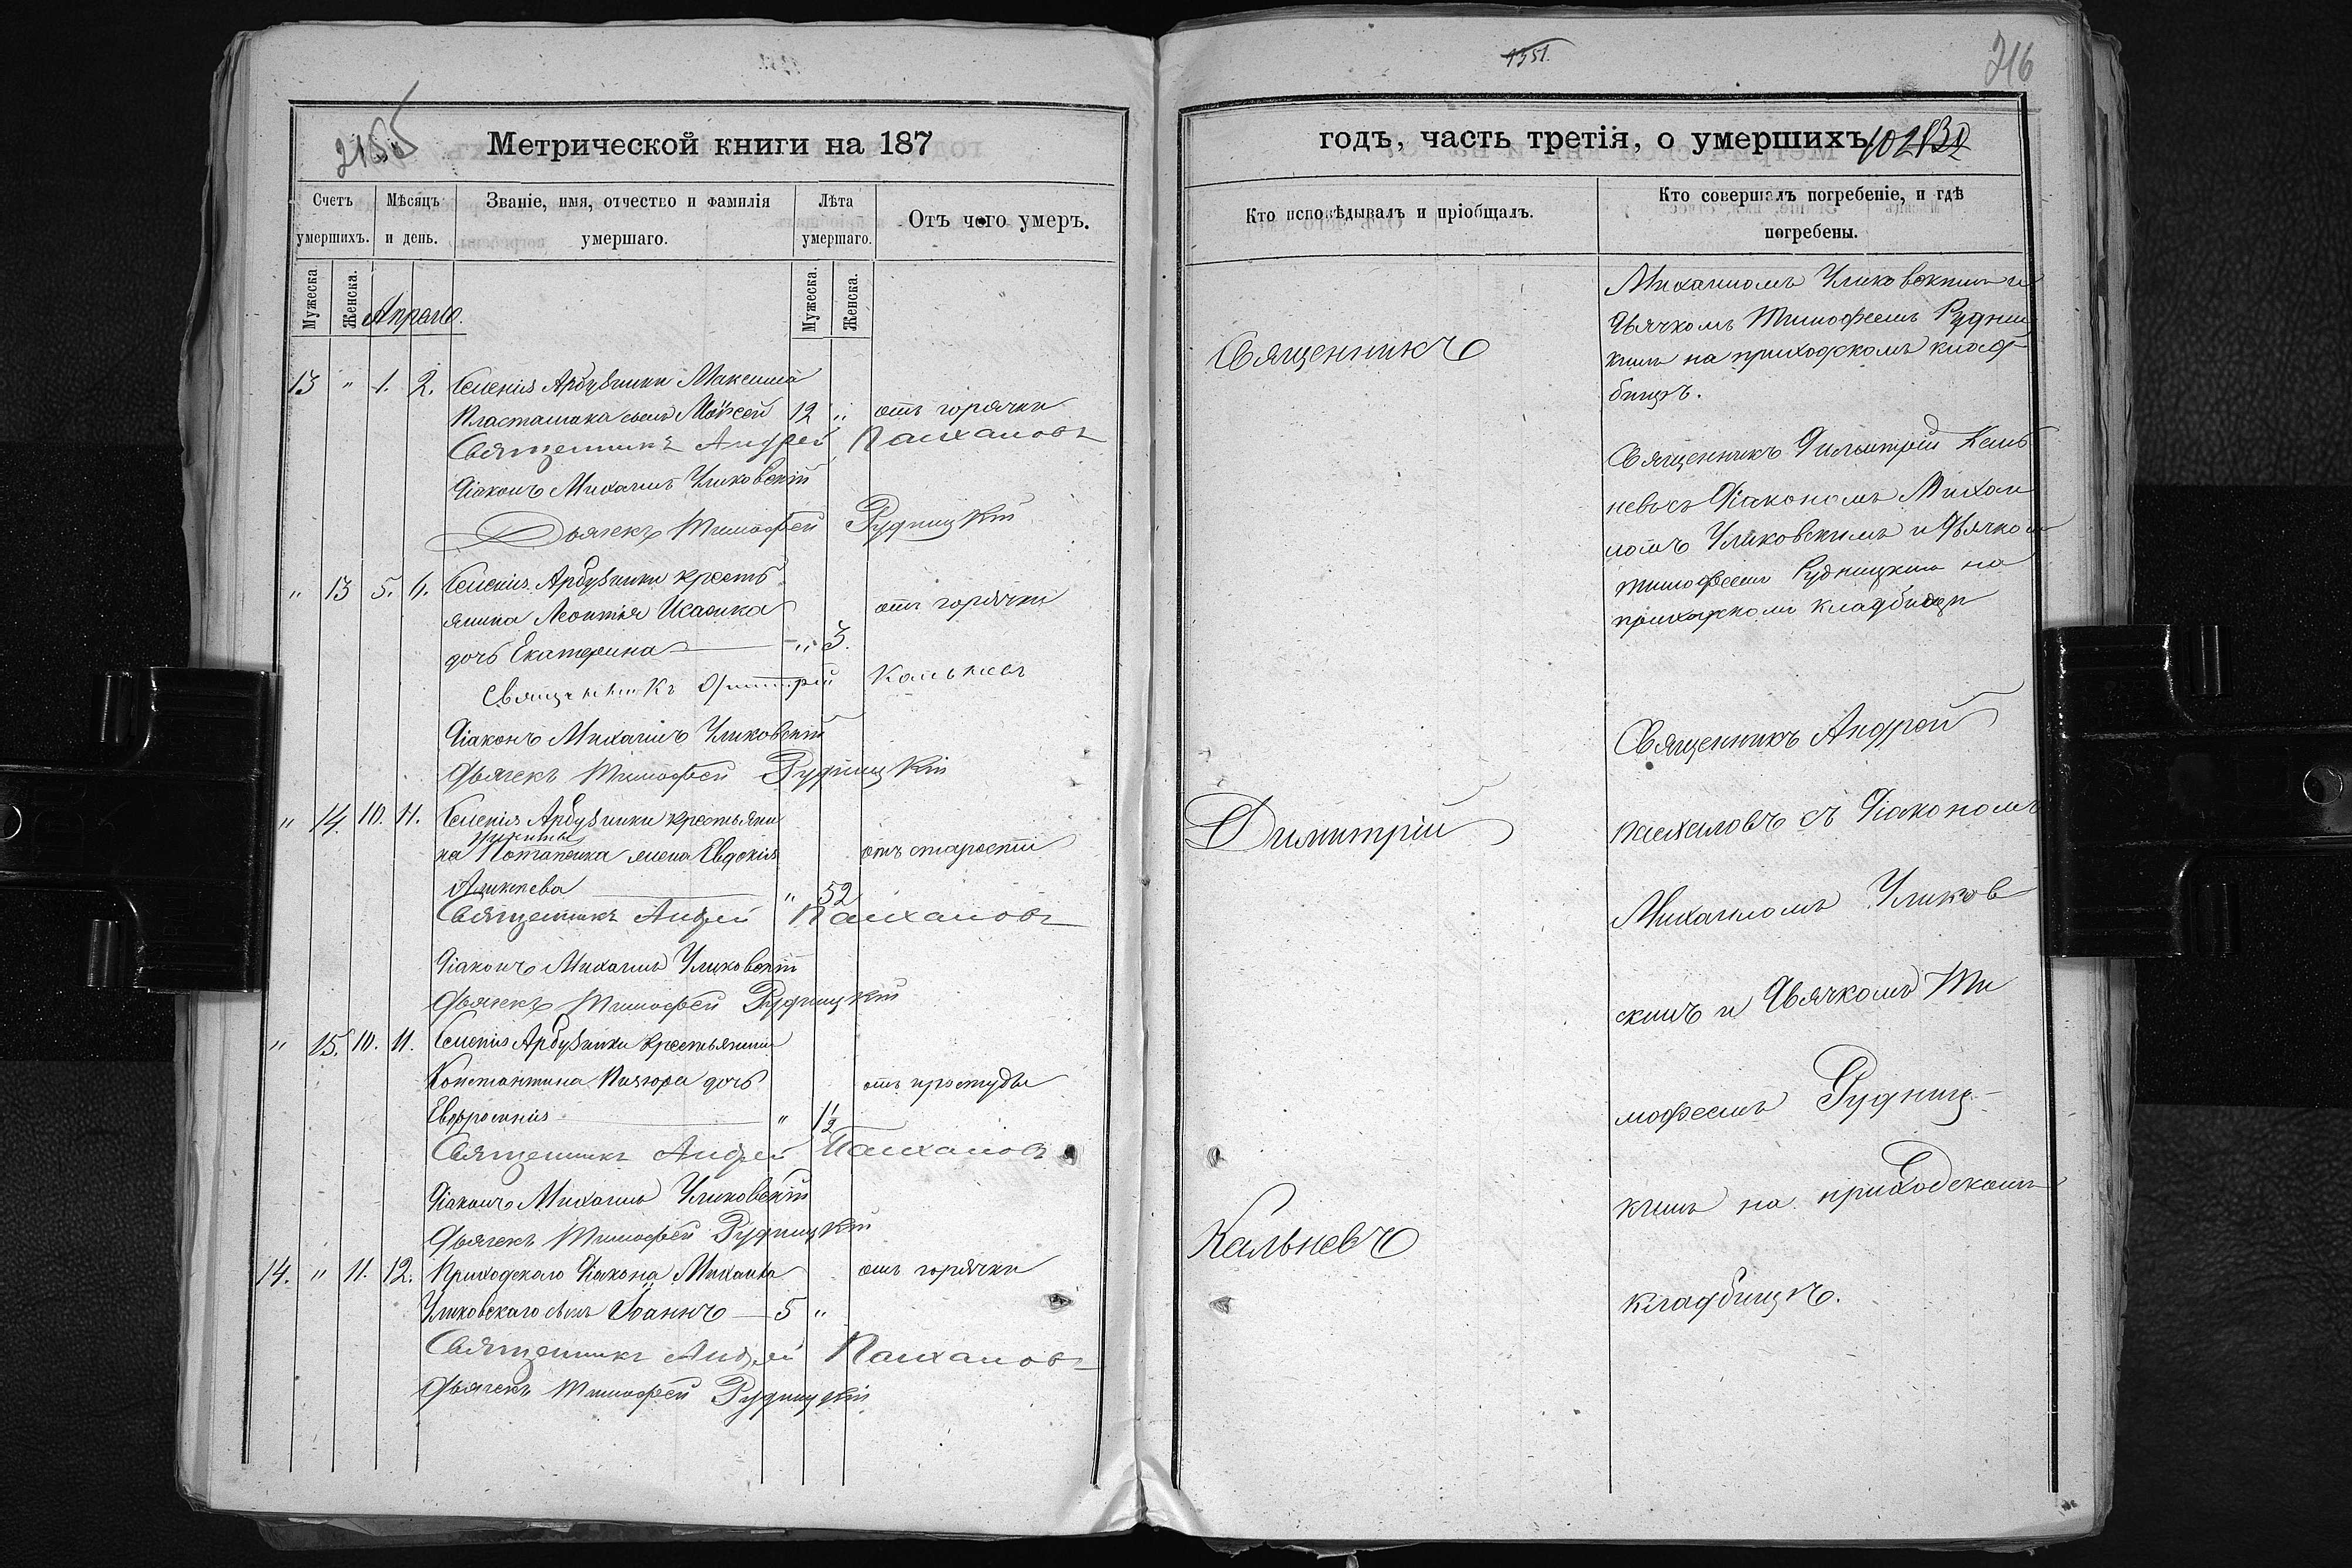 2155
Метрической книги на 187
Счетъ умершихъ.
Мѣсяцъ и день.
Званіе, имя, отчество и фамилія умершаго.
Лѣта умершаго.
Отъ чего умеръ.
Мужеска
Женска.
Мужеска.
Женска.
Апрель.
13 " 1. 2. Селенія Арбузинки Максима
сынъ Моисей 12 " отъ горячки
Священникъ Андрей
Діаконъ Михаилъ Уликовскій
Дьячекъ Тимофей Рудницкій
" 13 5. 6. Селенія Арбузинки кресть
янина Леонтія Исаенка отъ горячки
дочь Екатерина — " 3.
Священникъ Димитрій Кальневъ
Діаконъ Михаилъ Уликовскій
Дьячекъ Тимофей Рудницкій
" 14. 10. 11. Селенія Арбузинки крестьяни
на Потапенка жена Евдокія отъ старости
" 52
Священникъ Андрей
Діаконъ Михаилъ Уликовскій
Дьячекъ Тимофей Рудницкій
" 15. 10. 11. Селенія Арбузинки крестьянина
Константина дочь отъ простуды
Евфросинія — " 1/2
Священникъ Андрей
Діаконъ Михаилъ Уликовскій
Дьячекъ Тимофей Рудницкій
14. " 11. 12. Приходскаго Діакона Михаила отъ горячки
Уликовскаго сынъ Іоаннъ — 5 "
Священникъ Андрей
Дьячекъ Тимофей Рудницкій
1351.
216
годъ, часть третія, о умершихъ.
Кто исповѣдывалъ и пріобщалъ.
Кто совершалъ погребеніе, и гдѣ погребены.
Священникъ
Димитрій
Кальневъ
Михаиломъ Уликовскимъ и
Дьячкомъ Тимофеемъ Рудниц
кимъ на приходскомъ клад
бищѣ.
Священникъ Димитрій Каль
невъ съ Діакономъ Михаи
ломъ Уликовскимъ и Дьячком
Тимофеемъ Рудницкимъ на
приходскомъ кладбищѣ
Священникъ Андрей
съ Діакономъ
Михаиломъ Уликов
скимъ и Дьячкомъ Ти
мофеемъ Рудниц-
кимъ на приходскомъ
кладбищѣ.